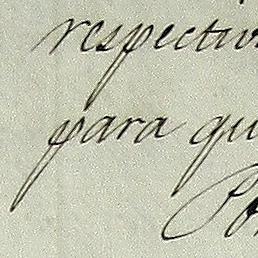 respectiv
para qu